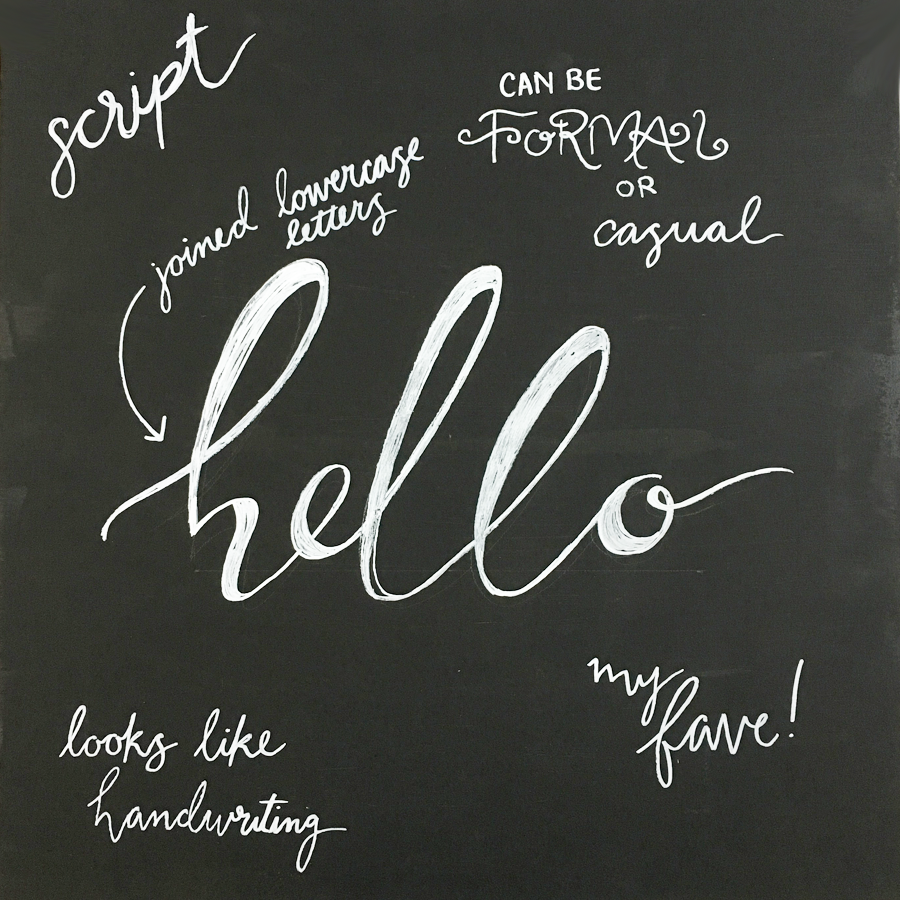 script
CAN BE
FORMAL
OR
casual
joined lowercase
letters
hello
my
fave!
looks like
handwriting